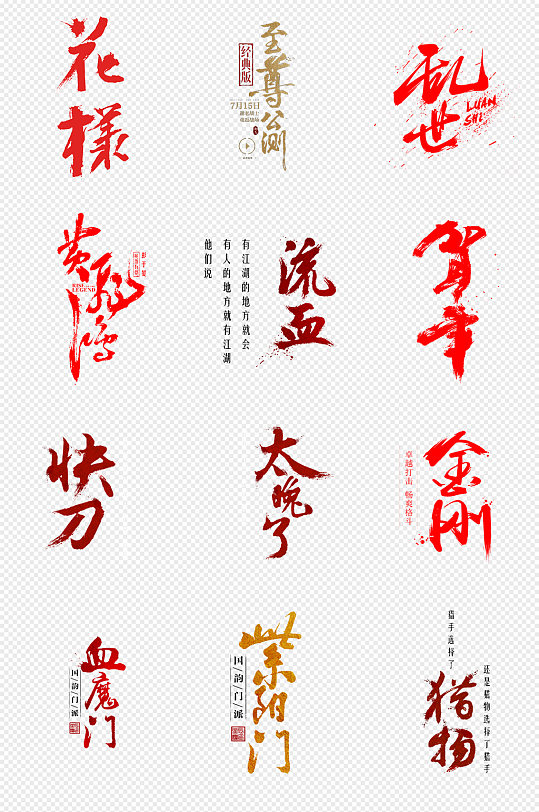 花
樣
经典版
至尊公测
7月15日
乱世
LUAN
SHI
黄飛鴻
RISE
LEGEND
彭于晏
有江湖的地方就会
有人的地方就有江湖
他们说
流血
贺年
快刀
太晚了
卓越打击 畅爽格斗
金刚
血魔门
国/韵/门/派
紫阳门
国/韵/门/派
猎手选择了
猎物
还是猎物选择了猎手